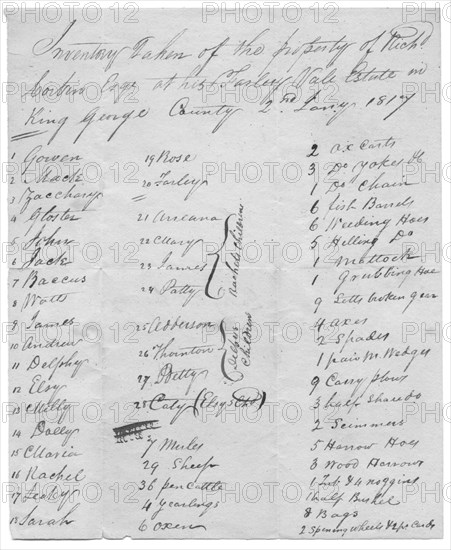 Inventory Taken of the property of Richd
Corbin Esqr at his Farley Vale Estate in
King George County 2nd Jany 1817
1 Gowen
2 Mack
3 Zacchary
4 Gloster
5 John
6 Jack
7 Baccus
8 Watt
9 James
10 Andrew
11 Delphy
12 Elsy
13 Milly
14 Dolly
15 Maria
16 Rachel
17
18 Sarah
19 Rose
20 Farley
21
22 Mary
23 James
24 Patty
Rachels Children
25 Adderson
26 Thornton
27 Betty
Children
28 Caty (Elsys Chd)
7 Mules
29 Sheep
36 pen Cattle
4 yearlings
6 oxen
2 ox Carts
3 Do yokes &c
1 Do Chain
6 fish Barrels
6 Weeding Hoes
5 Hilling Do
1 Mattock
1 Grubbing Hoe
9 Setts broken gear
4 axes
2 Spades
1 pair M. Wedges
9 Cary plows
3 half Share Do
2 Scimmers
5 Harrow Hoes
3 Wood Harrows
1 Tub & 4 noggins
1 half Bushel
8 Bags
2 Spinning Wheels & 2 pr Cards